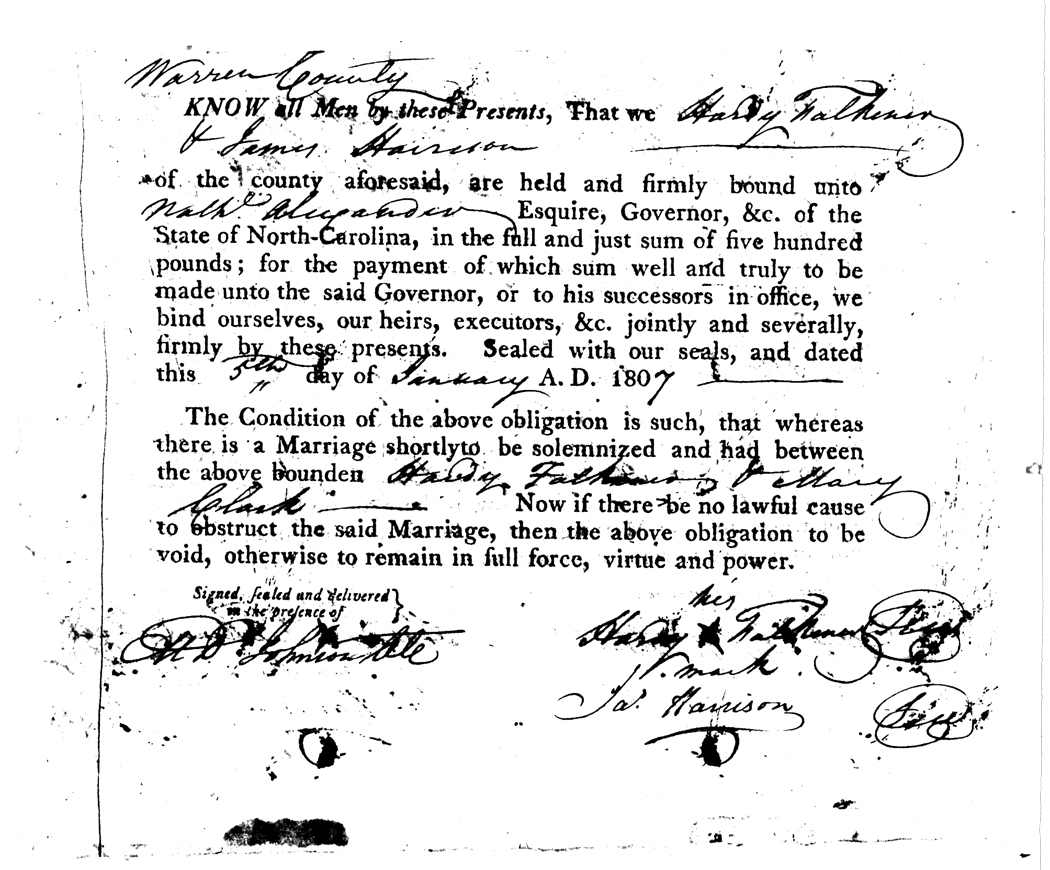 Warren County
KNOW all Men by these Presents, That we Hardy Falkener
& James Harrison
of the county aforesaid, are held and firmly bound unto
Nathl. Alexander Esquire, Governor, &c. of the
State of North-Carolina, in the full and just sum of five hundred
pounds; for the payment of which sum well and truly to be
made unto the said Governor, or to his successors in office, we
bind ourselves, our heirs, executors, &c. jointly and severally,
firmly by these presents. Sealed with our seals, and dated
this 5th day of January A. D. 1807
The Condition of the above obligation is such, that whereas
there is a Marriage shortly to be solemnized and had between
the above bounden Hardy Falkener & Mary
Clark Now if there be no lawful cause
to obstruct the said Marriage, then the above obligation to be
void, otherwise to remain in full force, virtue and power.
Signed, sealed and delivered
in the presence of
his
Hardy x Falkener Seal
mark
Johnson
Jas. Harrison Seal